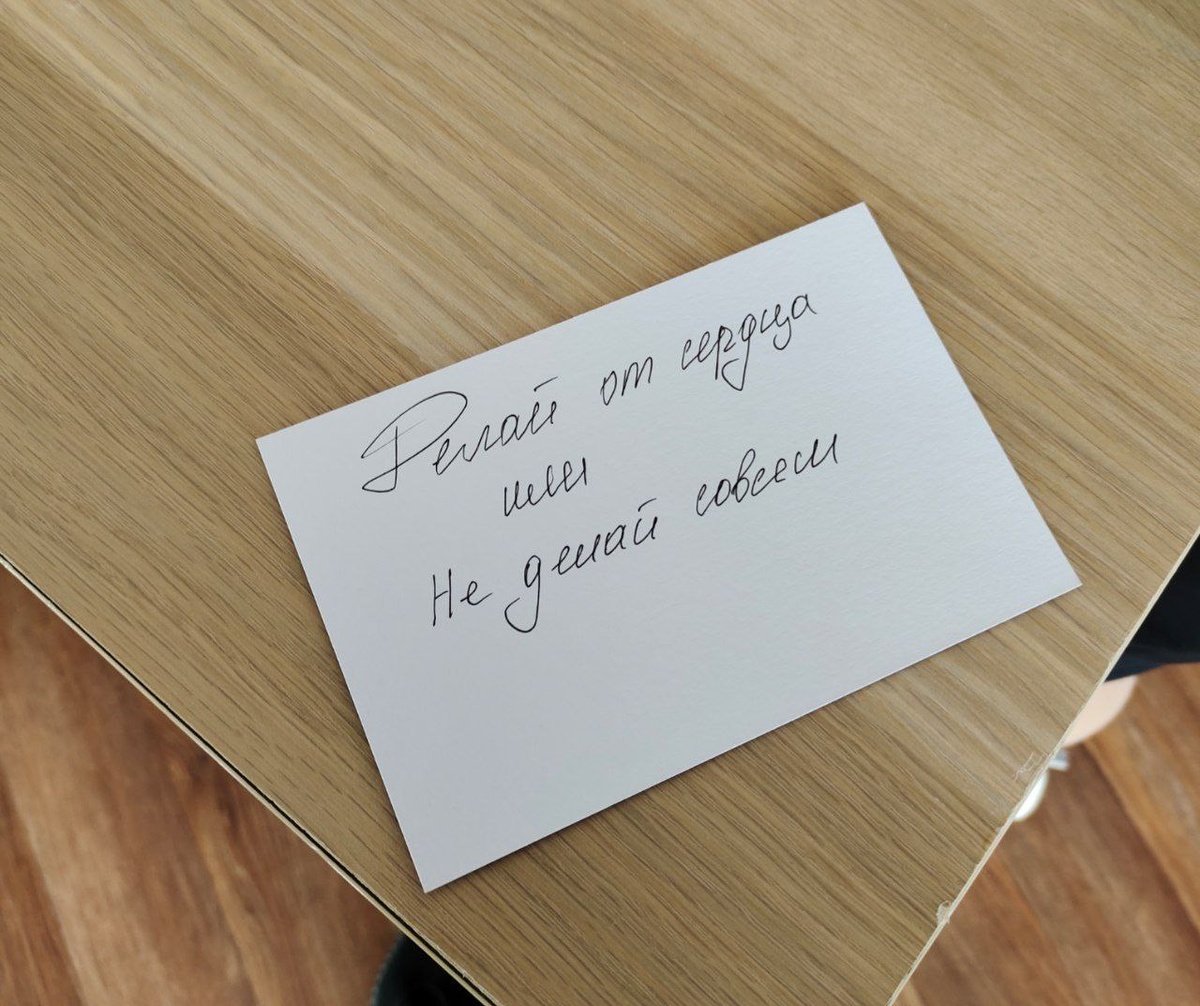 Делай от сердца
или
Не делай совсем